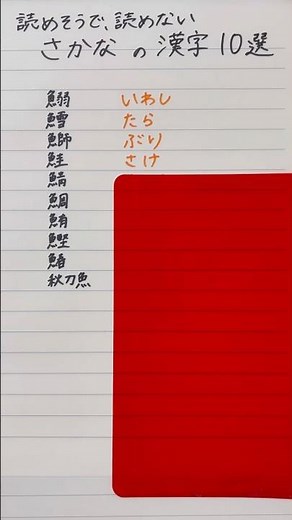 読めそうで、読めない
さかなの漢字10選
鰯 いわし
鱈 たら
鰤 ぶり
鮭 さけ
鯖
鯛
鮪
鰹
鰆
秋刀魚